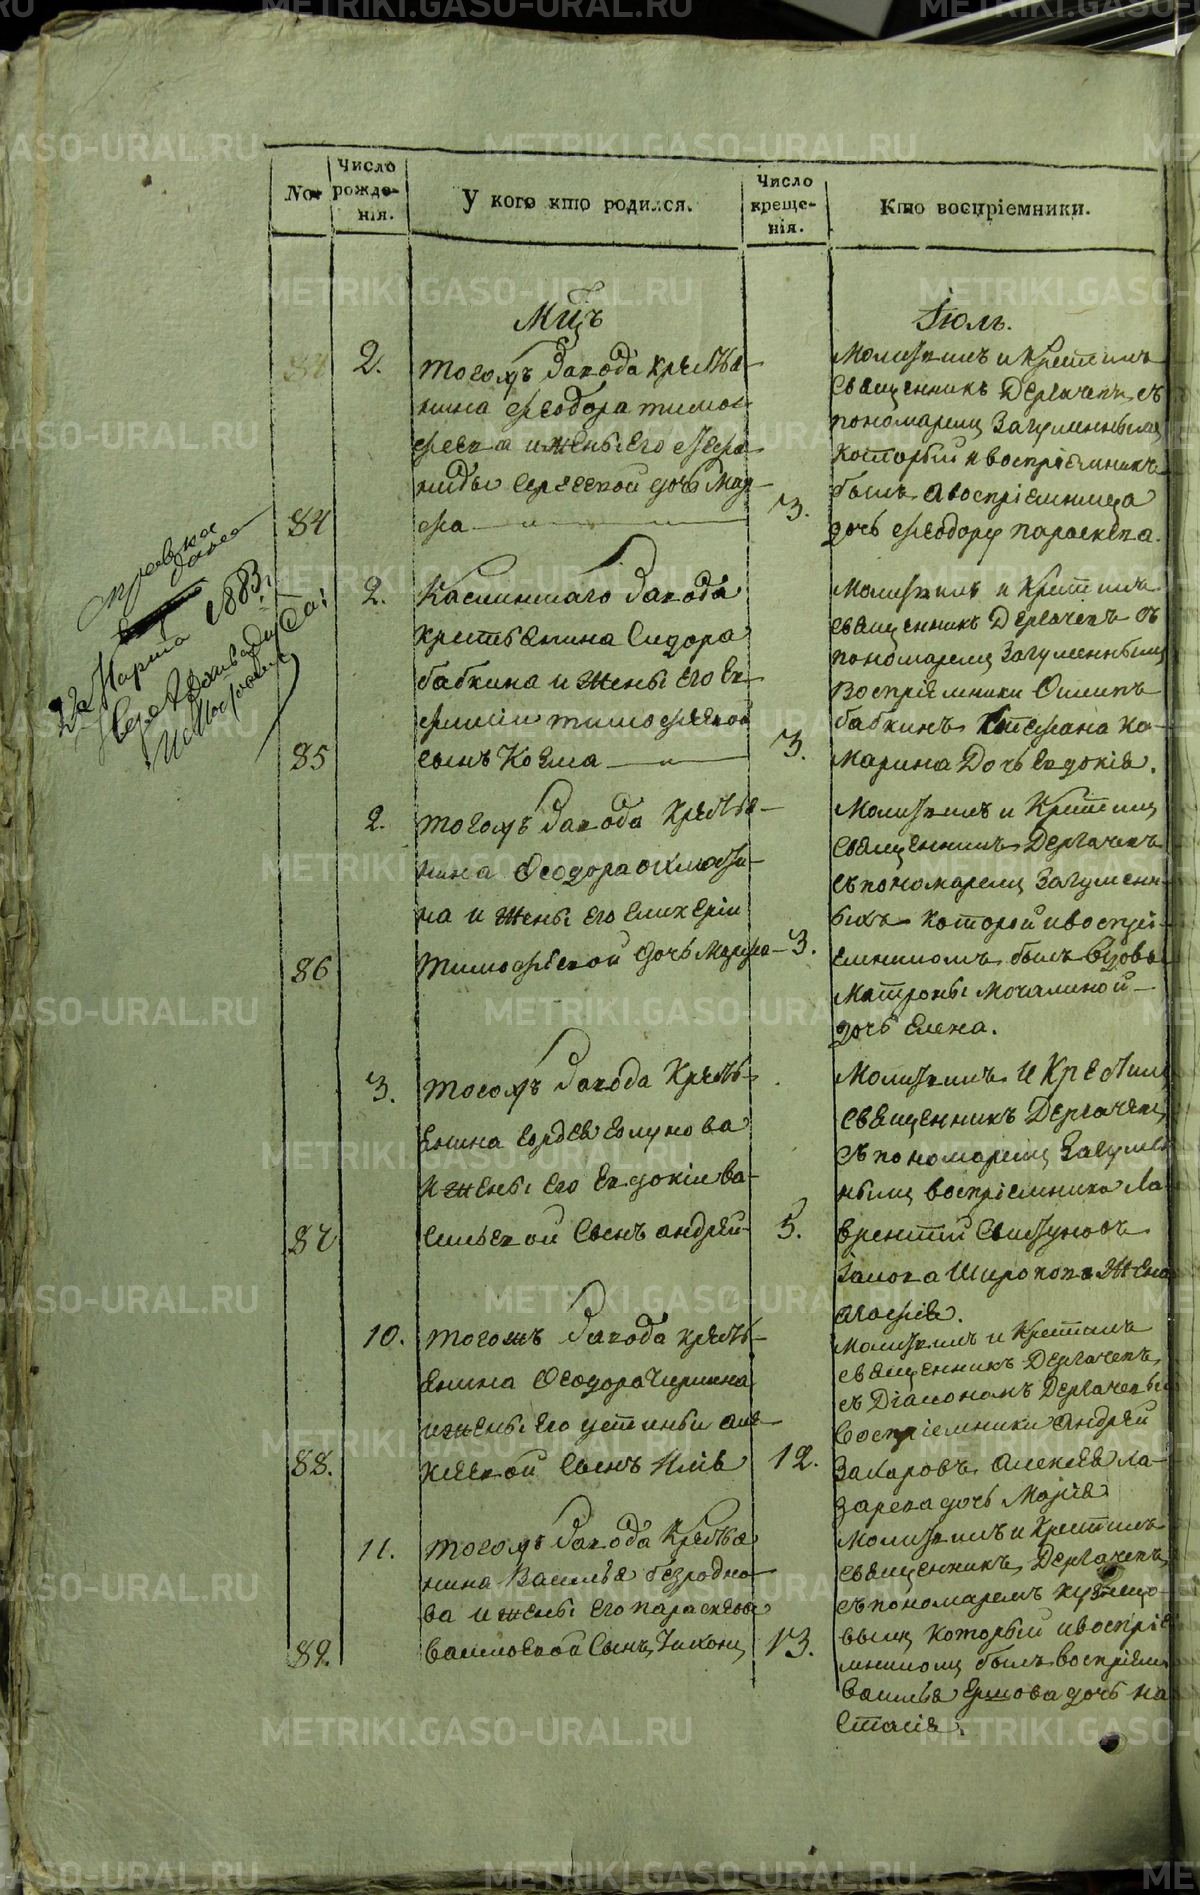 No.
Число рожде-
нія.
У кого кто родился.
Число
креще-
нія.
Кто воспріемники.
Мцъ
Іюль.
84
2.
тогожъ Завода крестья-
нина Феодора тимо-
феева и жены его
дочь Мар-
фа
3.
Молитвилъ и Крестилъ
священникъ Дергачевъ съ
пономаремъ Загуменнымъ
который и воспріемникъ
былъ а воспріемница
дочь Феодору параскева.
справка
дана
22 Марта 1883 г.
85
2.
Каслинскаго Завода
крестьянина Сидора
бабкина и жены его Ев-
фиміи тимофеевой
сынъ Козма
3.
Молитвилъ и Крестилъ
священникъ Дергачевъ съ
пономаремъ Загуменнымъ
Воспріемники Осипъ
бабкинъ Стефана Ко-
марина Дочь Евдокія.
86
2.
тогожъ Завода Крестья-
нина Феодора
на и жены его Гликеріи
тимофеевой дочь Марфа
3.
Молитвилъ и Крестилъ
священникъ Дергачевъ
съ пономаремъ Загумен-
нымъ который и воспріе-
емникомъ былъ вдовы
Матроны Мочалиной
дочь Елена.
87
3.
тогожъ Завода Кресть-
янина
и жены его Евдокіи ва-
сильевой Сынъ андрей
5.
Молитвилъ и Крестилъ
священникъ Дергачевъ
съ пономаремъ Загумен-
нымъ воспріемники Ла-
врентій
Широкова жена
агафія.
88.
10.
тогожъ Завода кресть-
янина Феодора Чиркина
и жены его устиньи але-
ксеевой Сынъ Илія
12.
Молитвилъ и Крестилъ
священникъ Дергачевъ
съ Діакономъ Дергачевымъ
Воспріемники Андрей
Захаровъ Алексея Ла-
зарева дочь Марія
89.
11.
тогожъ Завода Крестья
нина Василья безродно-
ва и жены его параскевы
васильевой Сынъ Тихонъ
13.
Молитвилъ и Крестилъ
священникъ Дергачевъ
съ пономаремъ кузнецо-
вымъ который и воспріе
мникомъ былъ воспріемн
Василья Ершова дочь на
стасія.
METRIKI.GASO-URAL.RU